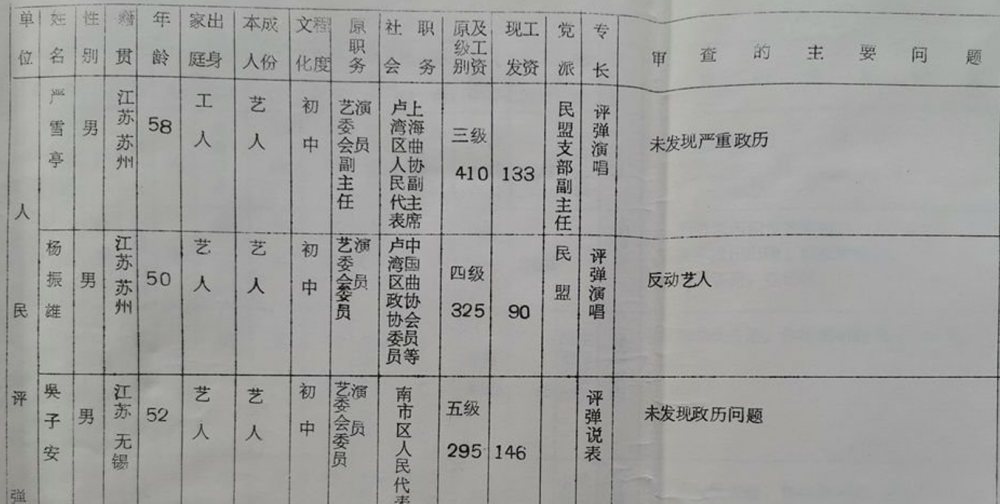 单位 姓名 性别 籍贯 年龄 家庭出身 本人成份 文化程度 原职务 社会职务 原级别及工资 现发工资 党派 专长 审查的主要问题
人民评弹
严雪亭 男 江苏苏州 58 工人 艺人 初中 演员艺委会副主任 上海曲协副主席卢湾区人民代表 三级410 133 民盟支部副主任 评弹演唱 未发现严重政历
杨振雄 男 江苏苏州 50 艺人 艺人 初中 演员艺委会委员 中国曲协会员等卢湾区政协委员 四级325 90 民盟 评弹演唱 反动艺人
吳子安 男 江苏无锡 52 艺人 艺人 初中 演员艺委会委员 南市区人民代表 五级295 146 评弹说表 未发现政历问题